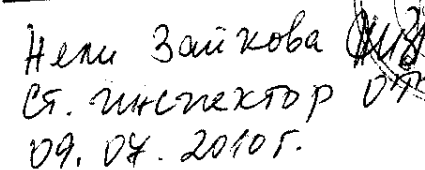 Нели Зайкова
Ст. инспектор ОТ
09.07.2010г.